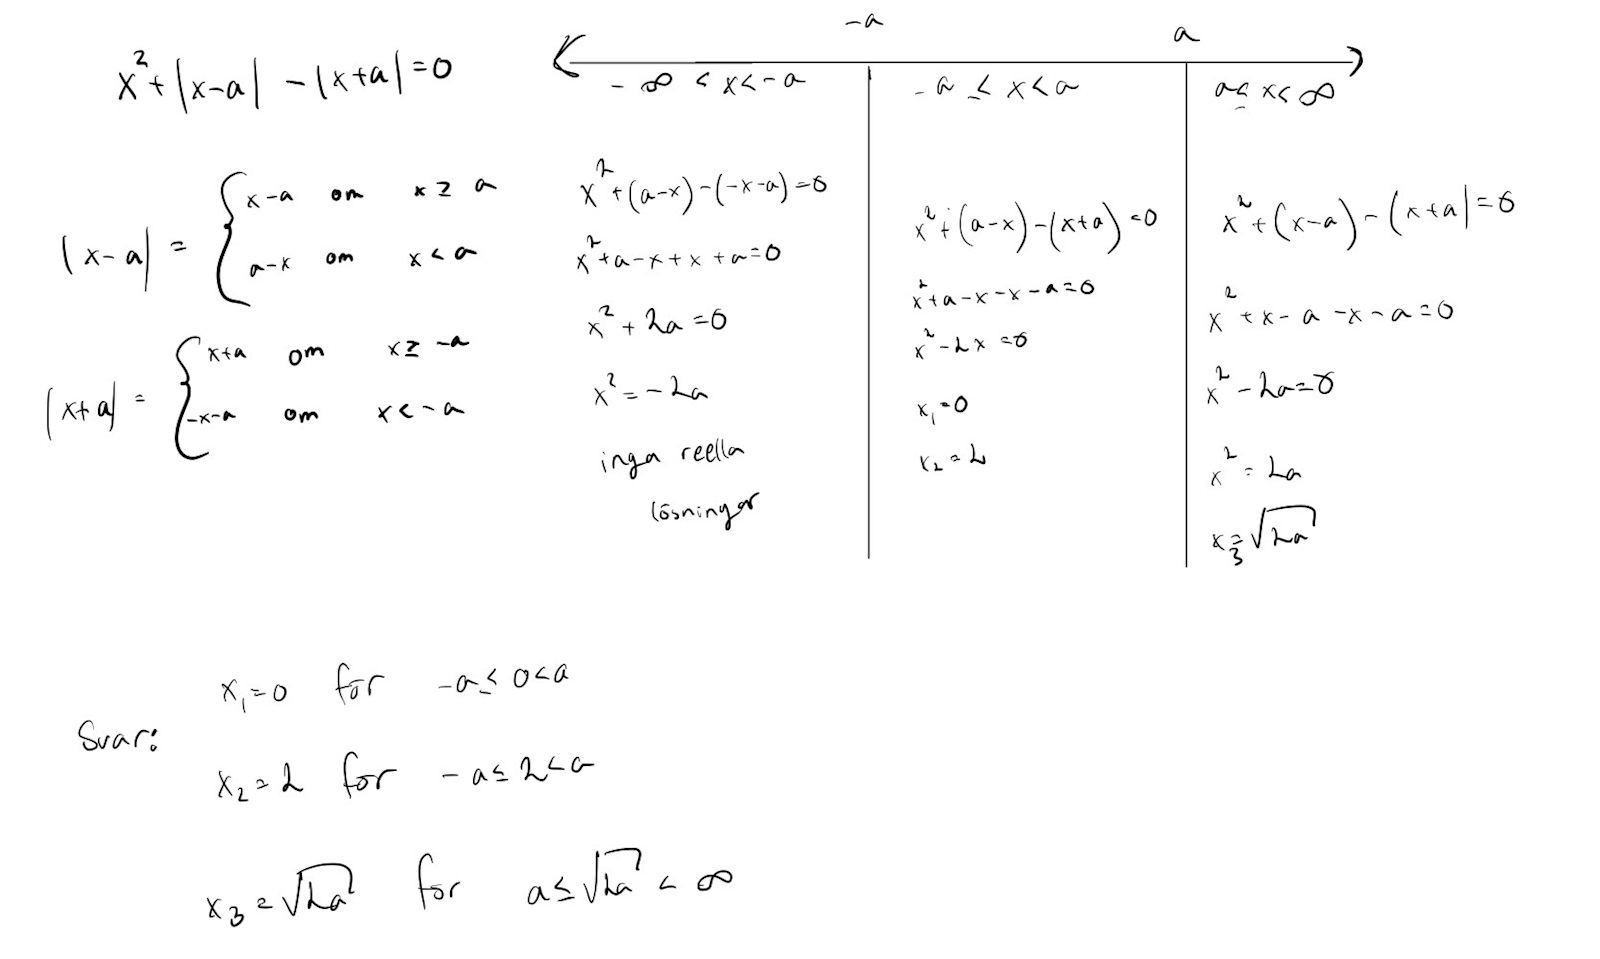 x²+|x-a| -|x+a|=0
-a
a
-∞ < x<-a
-a ≤ x<a
a≤ x<∞
|x-a| =
x-a om x≥ a
a-x om x<a
|x+a| =
x+a om x≥ -a
-x-a om x<-a
x²+(a-x)-(-x-a)=0
x²+a-x+x+a=0
x²+2a=0
x²=-2a
inga reella
lösningar
x²+(a-x)-(x+a)=0
x²+a-x-x-a=0
x²-2x=0
x₁=0
x₂=2
x²+(x-a)-(x+a)=0
x²+x-a-x-a=0
x²-2a=0
x²=2a
x₃=√2a
Svar:
x₁=0 för -a≤0<a
x₂=2 för -a≤2<a
x₃=√2a för a≤√2a<∞